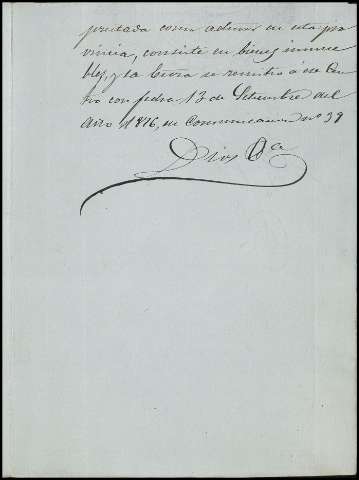 prestada como admor en esta pro
vincia, consiste en bienes inmue
bles, y la busca se remitió á ese Cen
tro con fecha 13 de Setiembre del
año 1876, en Comunicacion nº 39
Dios &a